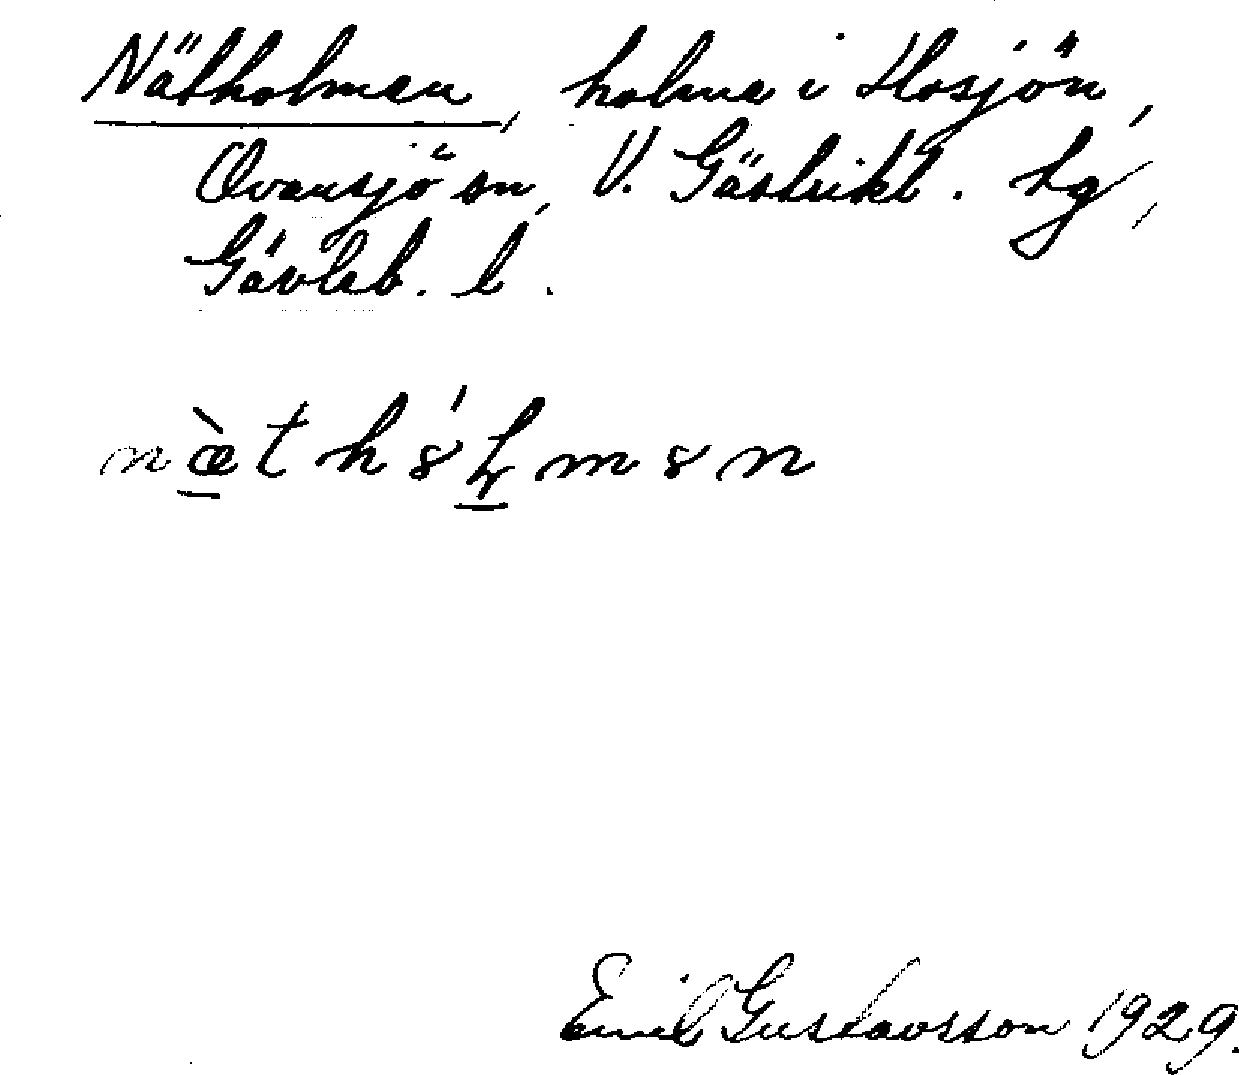 Nätholmen, holme i Hosjön,
Ovansjö sn, V. Gästrikl. hg,
Gävleb. l.
Emil Gustavsson 1929.